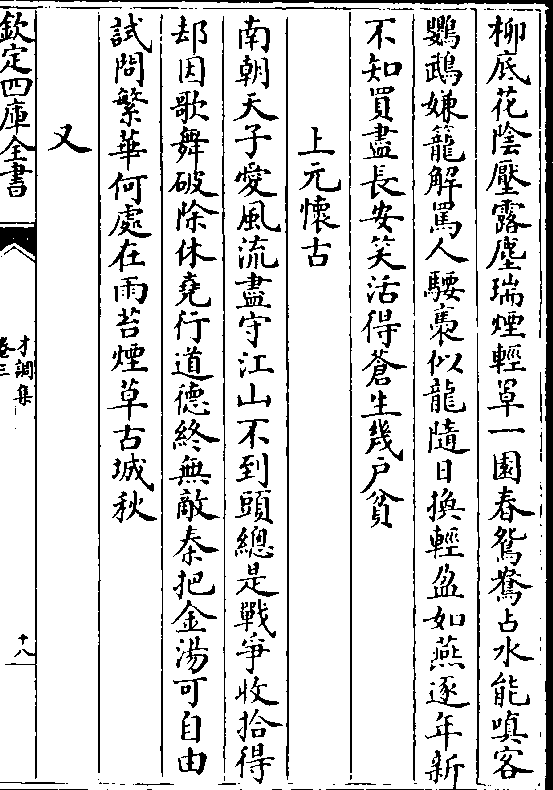 柳底花陰壓露塵瑞煙輕罩一園春鴛鴦占水能嗔客
鸚鵡嫌籠解罵人騕褭似龍隨日換輕盈如燕逐年新
不知買盡長安笑活得蒼生幾户貧
上元懷古
南朝天子愛風流盡守江山不到頭總是戰爭收拾得
却因歌舞破除休堯行道德終無敵秦把金湯可自由
試問繁華何處在雨苔煙草古城秋
又
欽定四庫全書
才調集
卷三
十八